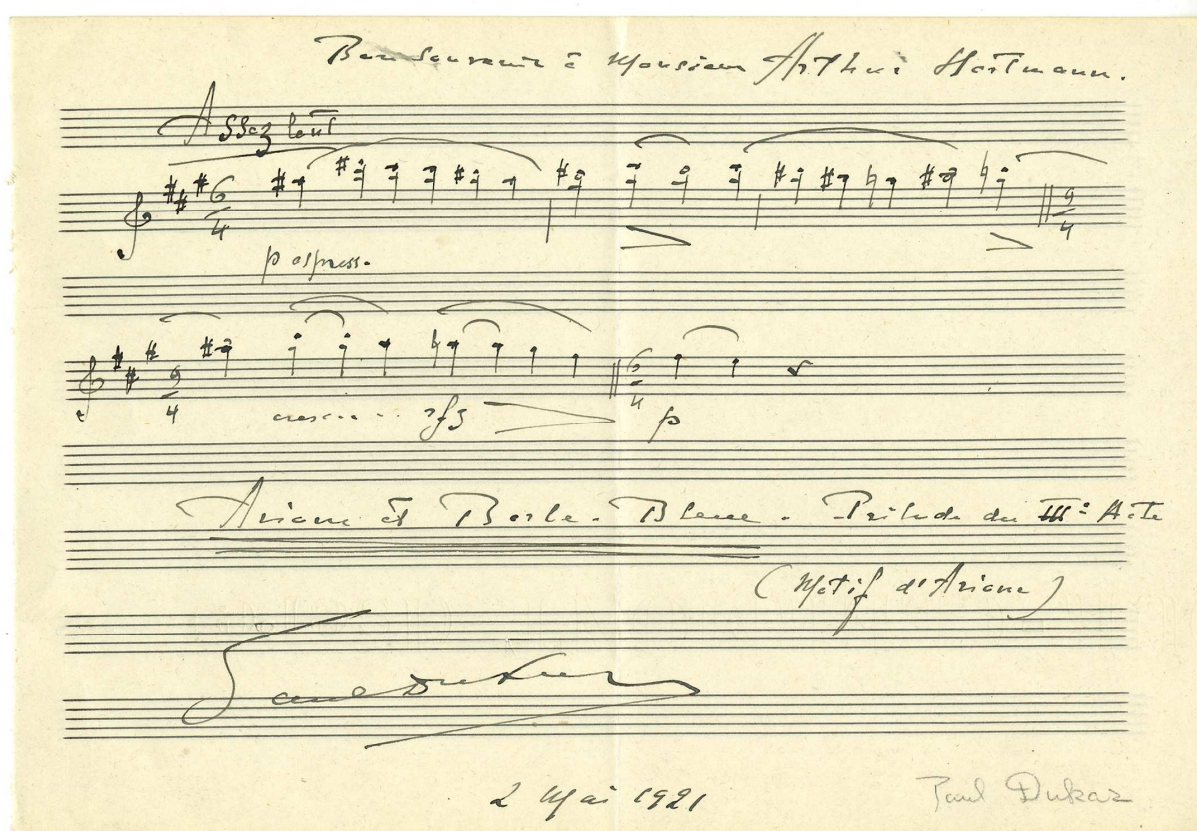 Bon Souvenir à Monsieur Arthur Hartmann.
Assez lent
6
4
9
4
p espress.
9
4
6
4
cresc. sfz p
Ariane et Barbe-Bleue. Prélude du IIIe Acte
(Motif d'Ariane)
Paul Dukas
2 Mai 1921
Paul Dukas